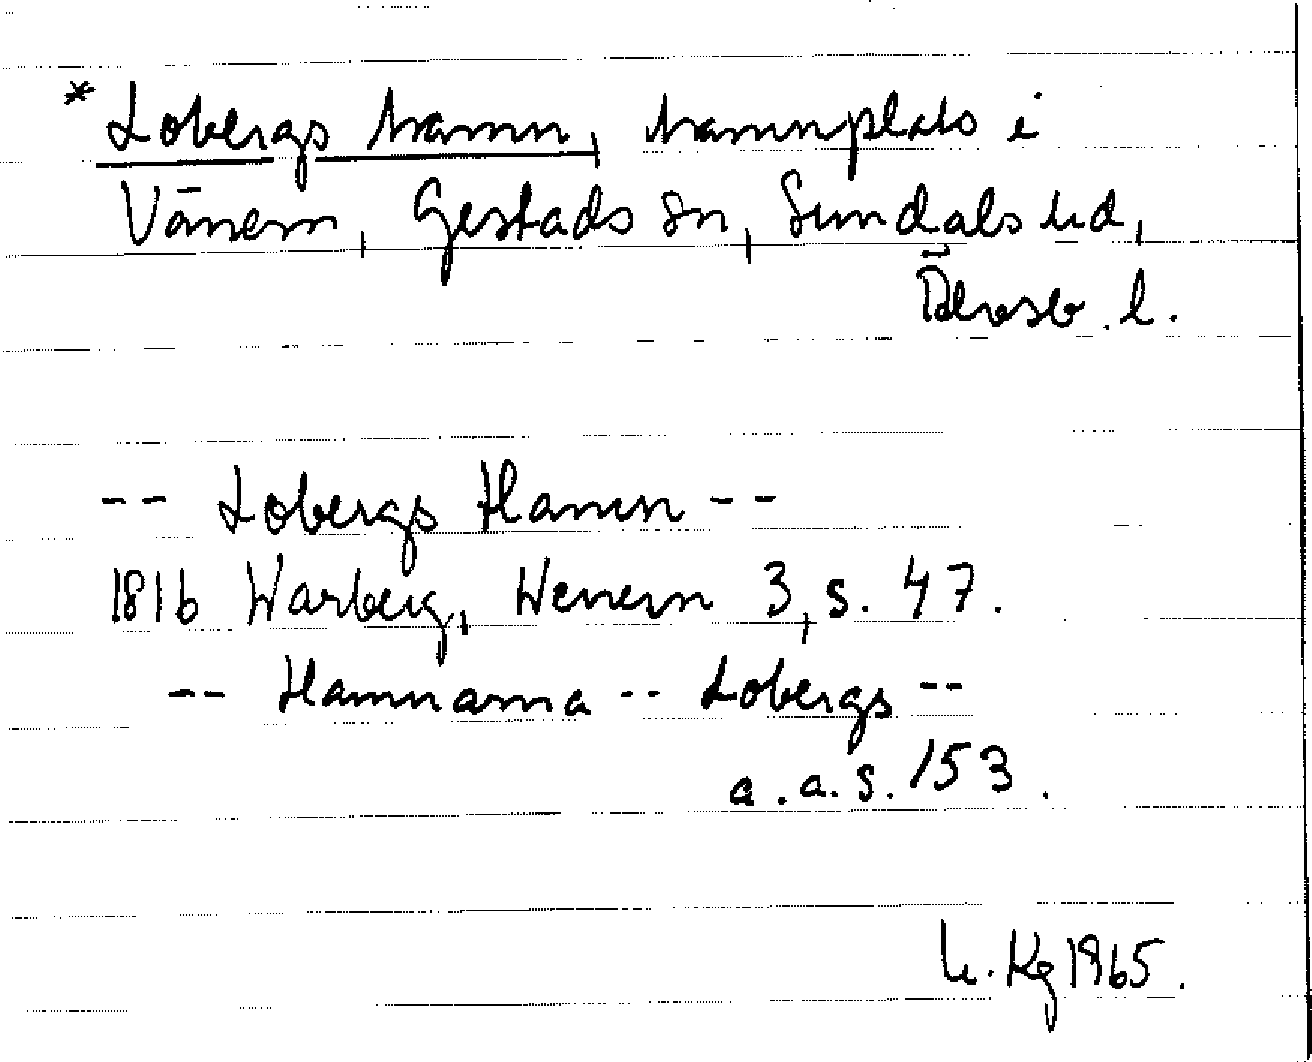 * Lobergs hamn, hamnplats i
Vänern, Gestads sn, Sundals hd,
Älvsb. l.
-- Lobergs Hamn --
1816 Warberg, Wenern 3, s. 47.
-- Hamnarna -- Lobergs --
a.a.s. 153.
Kg 1965.